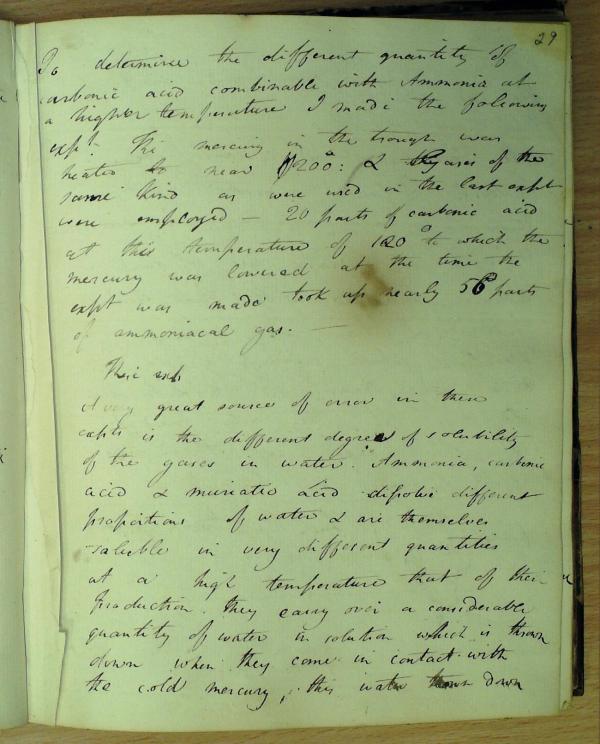 29
To determine the different quantity of
carbonic acid combinable with Ammonia at
a higher temperature I made the following
expt. The mercury in the trough was
heated to near 200°: & gases of the
same kind as were used in the last expt
were employed — 20 parts of carbonic acid
at this temperature of 120° to which the
mercury was lowered at the time the
expt was made took up nearly 56 parts
of ammoniacal gas. —
Their exp
A very great source of error in these
expts is the different degrees of solubility
of the gases in water. Ammonia, carbonic
acid & muriatic acid dissolve different
proportions of water & are themselves
soluble in very different quantities
at a high temperature that of their
production. They carry over a considerable
quantity of water in solution which is thrown
down when they come in contact with
the cold mercury, this water thrown down